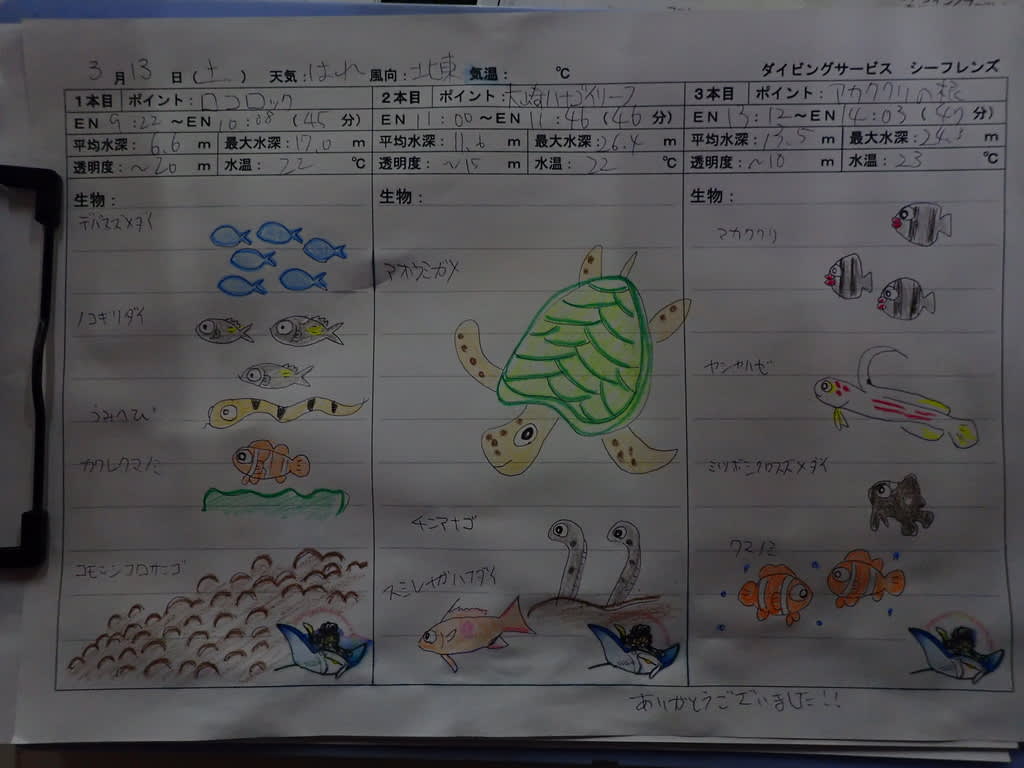 3月13日(土) 天気:はれ 風向:北東 気温: ℃
ダイビングサービス シーフレンズ
1本目 ポイント:ロコロック
EN 9:22~EN 10:08 (45分)
平均水深:6.6m 最大水深:17.0m
透明度:~20m 水温:22℃
生物:
デバスズメダイ
ノコギリダイ
うみへび
カクレクマノミ
コモンシコロサンゴ
2本目 ポイント:ハナゴイリーフ
EN 11:00~EN 11:46 (46分)
平均水深:11.6m 最大水深:26.4m
透明度:~15m 水温:22℃
生物:
アオウミガメ
チンアナゴ
スミレナガハナダイ
3本目 ポイント:アカククリの根
EN 13:12~EN 14:03 (47分)
平均水深:13.5m 最大水深:24.5m
透明度:~10m 水温:23℃
生物:
アカククリ
ヤシャハゼ
ミツボシクロスズメダイ
クマノミ
ありがとうございました!!